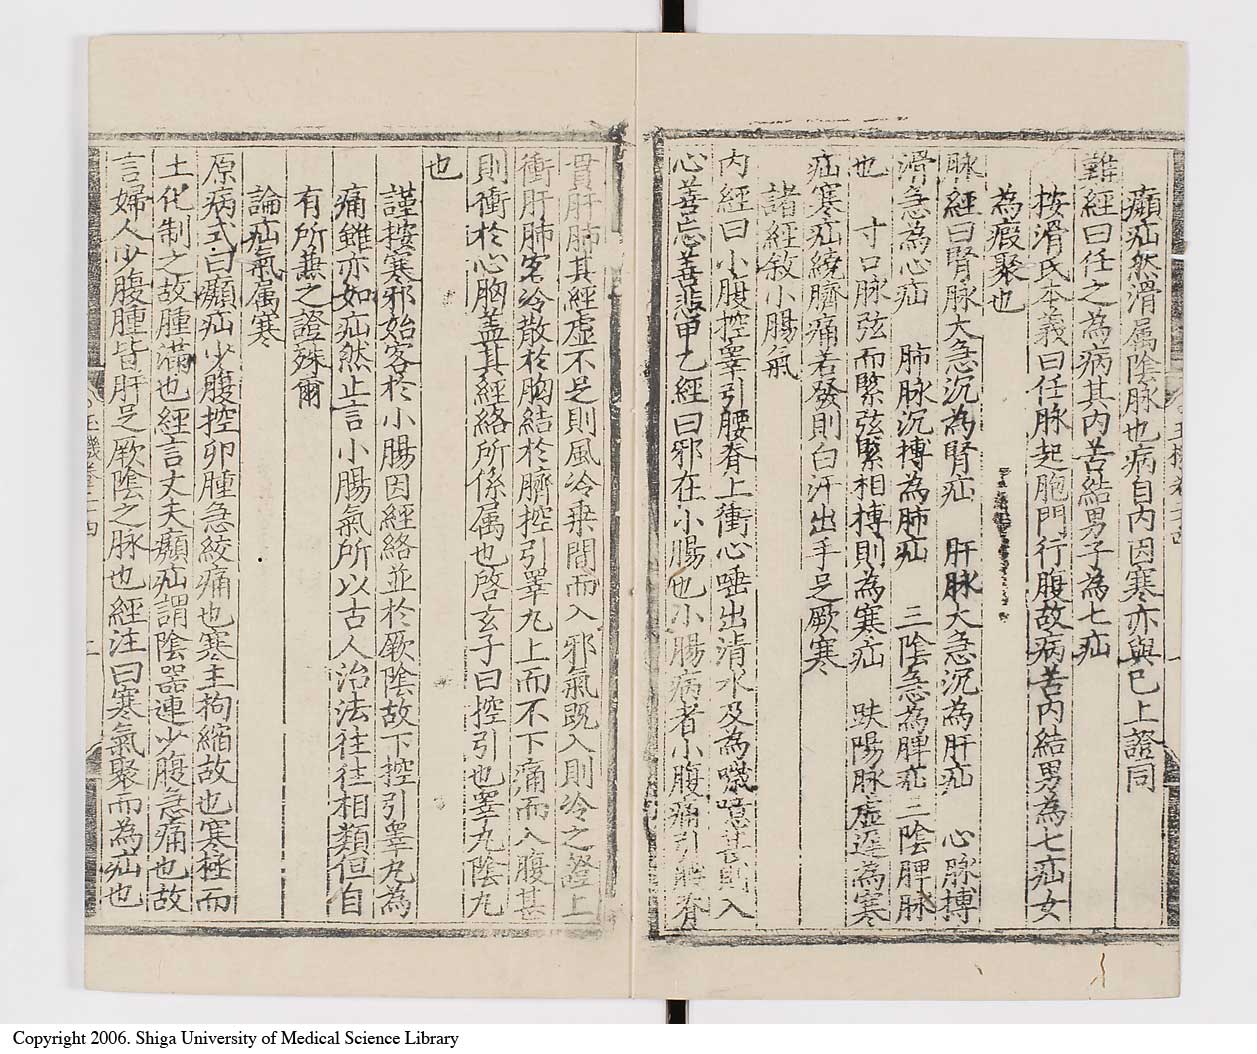 癲疝然滑属陰脉也病自内因寒亦與已上證同
難經曰任之為病其内苦結男子為七疝
按滑氏本義曰任脉起胞門行腹故病苦内結男為七疝女
為瘕聚也
脉經曰腎脉大急沉為腎疝 肝脉大急沉為肝疝 心脉搏
滑急為心疝 肺脉沉搏為肺疝 三陰急為脾疝二陰脾脉
也 寸口脉弦而緊弦緊相搏則為寒疝 趺陽脉虛遲為寒
疝寒疝繞臍痛若發則白汗出手足厥寒
諸經敘小腸氣
内經曰小腹控睪引腰脊上衝心唾出清水及為噦噫甚則入
心善忘善悲甲乙經曰邪在小腸也小腸病者小腹痛引腰脊
貫肝肺其經虛不足則風冷乗間而入邪氣既入則冷之證上
衝肝肺客冷散於胸結於臍控引睪丸上而不下痛而入腹甚
則衝於心胸盖其經絡所係属也啓玄子曰控引也睪丸陰丸
也
謹按寒邪始客於小腸因經絡並於厥陰故下控引睪丸為
痛雖亦如疝然止言小腸氣所以古人治法往往相類但自
有所兼之證殊爾
論疝氣属寒
原病式曰㿗疝少腹控卵腫急絞痛也寒主拘縮故也寒極而
土化制之故腫滿也經言丈夫㿗疝謂陰器連少腹急痛也故
言婦人少腹腫皆肝足厥陰之脉也經注曰寒氣聚而為疝也
玉機卷二十四